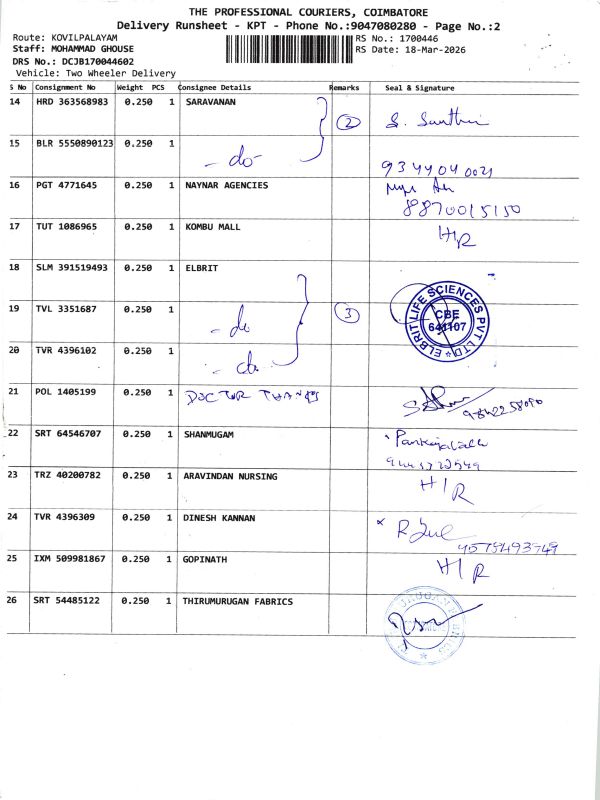 THE PROFESSIONAL COURIERS, COIMBATORE
Delivery Runsheet - KPT - Phone No.:9047080280 - Page No.:2
Route: KOVILPALAYAM RS No.: 1700446
Staff: MOHAMMAD GHOUSE RS Date: 18-Mar-2026
DRS No.: DCJB170044602
Vehicle: Two Wheeler Delivery
S No Consignment No Weight PCS Consignee Details Remarks Seal & Signature
14 HRD 363568983 0.250 1 SARAVANAN 2
15 BLR 5550890123 0.250 1 - do -
9344040021
16 PGT 4771645 0.250 1 NAYNAR AGENCIES
8870015150
17 TUT 1086965 0.250 1 KOMBU MALL H/R
18 SLM 391519493 0.250 1 ELBRIT
19 TVL 3351687 0.250 1 - do 3
ELBRIT LIFE SCIENCES PVT LTD
CBE
641107
20 TVR 4396102 0.250 1 - do
21 POL 1405199 0.250 1 DOCTOR
22 SRT 64546707 0.250 1 SHANMUGAM
23 TRZ 40200782 0.250 1 ARAVINDAN NURSING H/R
24 TVR 4396309 0.250 1 DINESH KANNAN
25 IXM 509981867 0.250 1 GOPINATH H/R
26 SRT 54485122 0.250 1 THIRUMURUGAN FABRICS